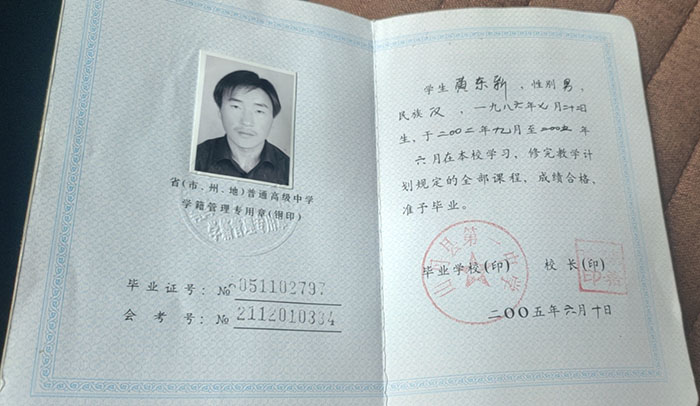 省(市、州、地)普通高级中学
学籍管理专用章(钢印)
毕业证号: № 051102797
会考号: № 2112010334
学生 黄东新 ,性别 男,
民族 汉 ,一九八六年七月二十二日
生,于二〇〇二年九月至二〇〇五年
六月在本校学习,修完教学计
划规定的全部课程,成绩合格,
准予毕业。
毕业学校(印) 校长(印)
县第二中学
二〇〇五年六月十日